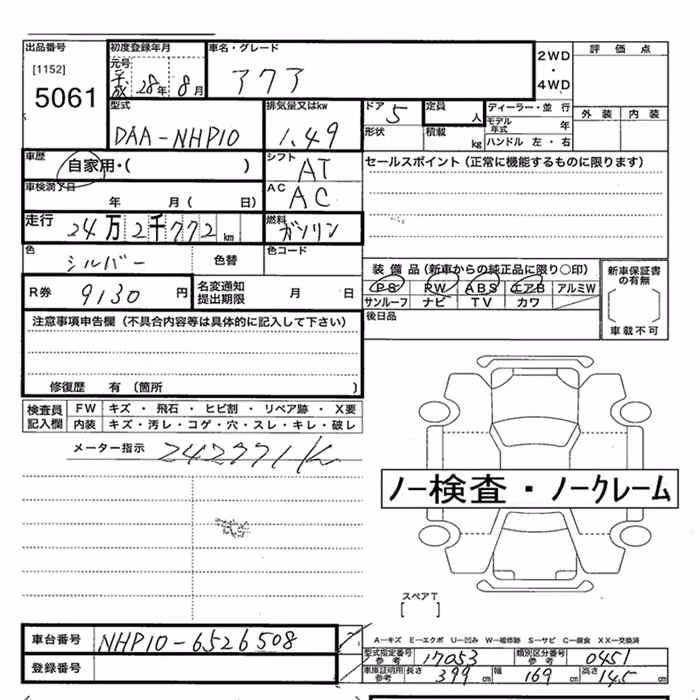 出品番号 初度登録年月 車名・グレード 評価点
[1152] 元号 2WD
5061 平成 28年 8月 アクア ・
4WD
型式 排気量又はkw ドア 定員 ディーラー・並行 外装 内装
DAA-NHP10 1.49 5 人 モデル年式 年
形状 積載 kg ハンドル 左・右
車歴 シフト セールスポイント (正常に機能するものに限ります)
自家用・( ) AT
車検満了日 AC
年 月 ( 日) AC
走行 24万2千772km 燃料 ガソリン
色 シルバー 色替 色コード
装備品 (新車からの純正品に限り○印) 新車保証書の有無
R券 9130 円 名変通知提出期限 月 日
PS PW ABS エアB アルミW
サンルーフ ナビ TV カワ
後日品 車載不可
注意事項申告欄 (不具合内容等は具体的に記入して下さい)
修復歴 有 (箇所 )
検査員記入欄 FW キズ ・ 飛石 ・ ヒビ割 ・ リペア跡 ・ X要
内装 キズ・汚レ・コゲ・穴・スレ・キレ・破レ
メーター指示
ノー検査・ノークレーム
スペアT
[ ]
車台番号 NHP10-6526508
登録番号
A-キズ E-エクボ U-凹み W-補修跡 S-サビ C-腐食 XX-交換済
型式指定番号 参考 17053 類別区分番号 参考 0451
車庫証明用 参考 長さ 399 cm 幅 169 cm 高さ 145 cm